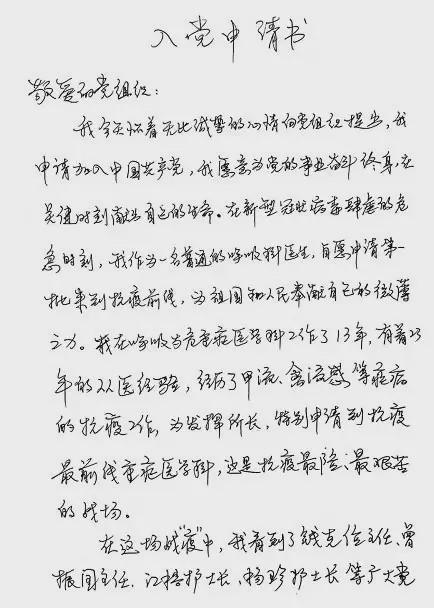 入党申请书
敬爱的党组织：
我今天怀着无比诚挚的心情向党组织提出，我
申请加入中国共产党，我愿意为党的事业奋斗终身，在
关键时刻献出自己的生命。在新型冠状病毒肆虐的危
急时刻，我作为一名普通的呼吸科医生，自愿申请第一
批来到抗疫前线，为祖国和人民奉献自己的微薄
之力。我在呼吸与危重症医学科工作了13年，有着23
年的从医经验，经历了甲流、禽流感等疫病
的抗疫工作，为发挥所长，特别申请到抗疫
最前线重症医学科，这是抗疫最险、最艰苦
的战场。
在这场战“疫”中，我看到了钱克俭主任、曾
振国主任、江榕护士长、杨珍护士长等广大党